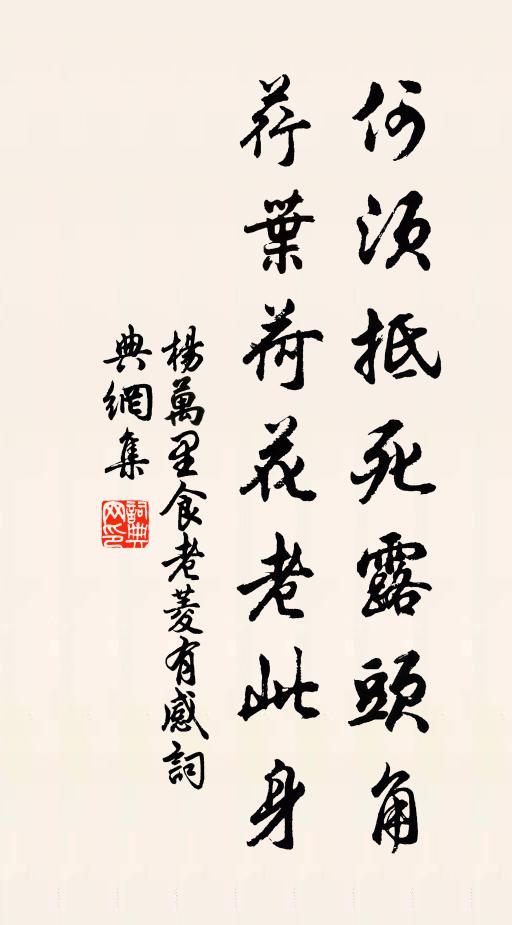 何須抵死露頭角
荇葉荷花老此身
楊萬里食老菱有感詞
典網集
詞典网印